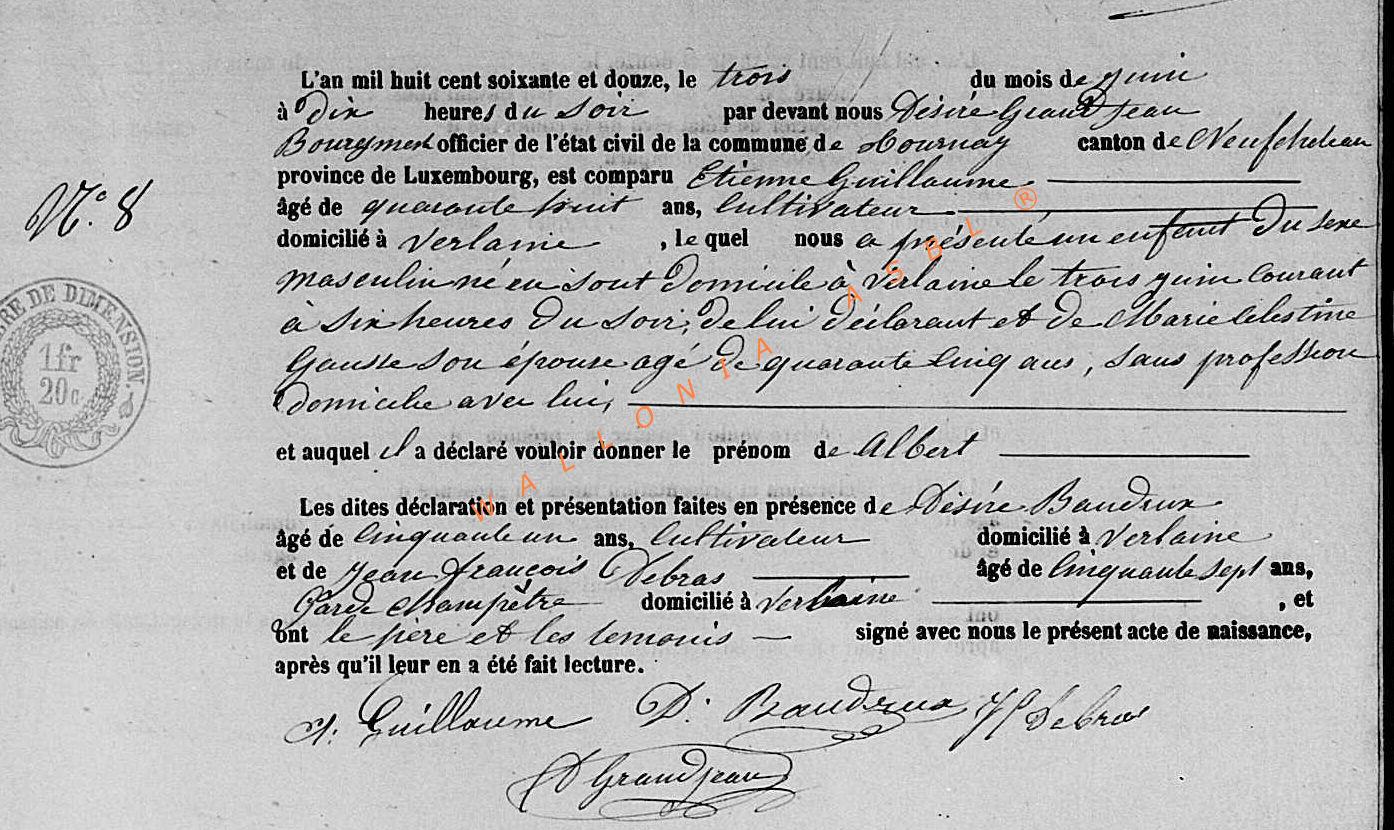 L'an mil huit cent soixante et douze, le trois du mois de juin
à Dix heures du Soir par devant nous Désiré Grandjean
Bourgmest officier de l'état civil de la commune de Tournay canton de Neufchateau
province de Luxembourg, est comparu Etienne Guillaume
N° 8
âgé de quarante huit ans, Cultivateur
domicilié à Verlaine, lequel nous a présenté un enfant du sexe
masculin né en sont Domicile à Verlaine le trois juin Courant
à Six heures du Soir, de lui déclarant et de Marie Celestine
Gausse son épouse agé de quarante Cinq ans, sans profession
domicilie avec lui,
TIMBRE DE DIMENSION.
1 fr
20 c
et auquel il a déclaré vouloir donner le prénom de Albert
Les dites déclaration et présentation faites en présence de Désiré Baudrux
âgé de Cinquante un ans, Cultivateur domicilié à Verlaine
et de Jean françois Debras âgé de Cinquante Sept ans,
Garde Champêtre domicilié à Verlaine, et
ont le père et les temoins signé avec nous le présent acte de naissance,
après qu'il leur en a été fait lecture.
Guillaume D. Baudrux Debras
D Grandjean
WALLONIA ASBL ®